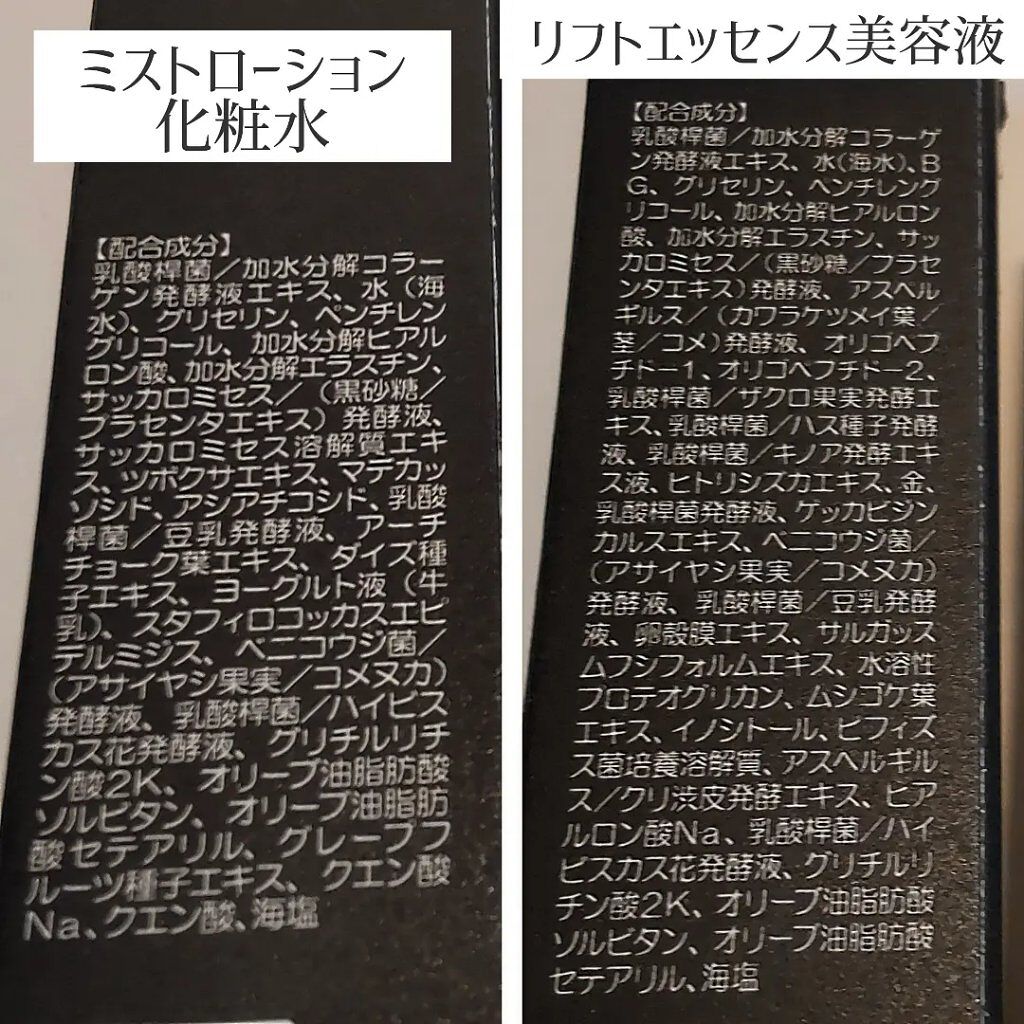 ミストローション
化粧水
【配合成分】
乳酸桿菌/加水分解コラー
ゲン発酵液エキス、水(海
水)、グリセリン、ペンチレン
グリコール、加水分解ヒアル
ロン酸、加水分解エラスチン、
サッカロミセス/(黒砂糖/
プラセンタエキス)発酵液、
サッカロミセス溶解質エキ
ス、ツボクサエキス、マデカッ
ソシド、アシアチコシド、乳酸
桿菌/豆乳発酵液、アーチ
チョーク葉エキス、ダイズ種
子エキス、ヨーグルト液(牛
乳)、スタフィロコッカスエピ
デルミジス、ベニコウジ菌/
(アサイヤシ果実/コメヌカ)
発酵液、乳酸桿菌/ハイビス
カス花発酵液、グリチルリチ
ン酸2K、オリーブ油脂肪酸
ソルビタン、オリーブ油脂肪
酸セテアリル、グレープフ
ルーツ種子エキス、クエン酸
Na、クエン酸、海塩
リフトエッセンス美容液
【配合成分】
乳酸桿菌/加水分解コラーゲ
ン発酵液エキス、水(海水)、B
G、グリセリン、ペンチレング
リコール、加水分解ヒアルロン
酸、加水分解エラスチン、サッ
カロミセス/(黒砂糖/プラセ
ンタエキス)発酵液、アスペル
ギルス/(カワラケツメイ葉/
茎/コメ)発酵液、オリゴペプ
チドー1、オリゴペプチドー2、
乳酸桿菌/ザクロ果実発酵エ
キス、乳酸桿菌/ハス種子発酵
液、乳酸桿菌/キノア発酵エキ
ス液、ヒトリシズカエキス、金、
乳酸桿菌発酵液、ゲッカビジン
カルスエキス、ベニコウジ菌/
(アサイヤシ果実/コメヌカ)
発酵液、乳酸桿菌/豆乳発酵
液、卵殻膜エキス、サルガッス
ムフシフォルムエキス、水溶性
プロテオグリカン、ムシゴケ葉
エキス、イノシトール、ビフィズ
ス菌培養溶解質、アスペルギル
ス/クリ渋皮発酵エキス、ヒア
ルロン酸Na、乳酸桿菌/ハイ
ビスカス花発酵液、グリチルリ
チン酸2K、オリーブ油脂肪酸
ソルビタン、オリーブ油脂肪酸
セテアリル、海塩